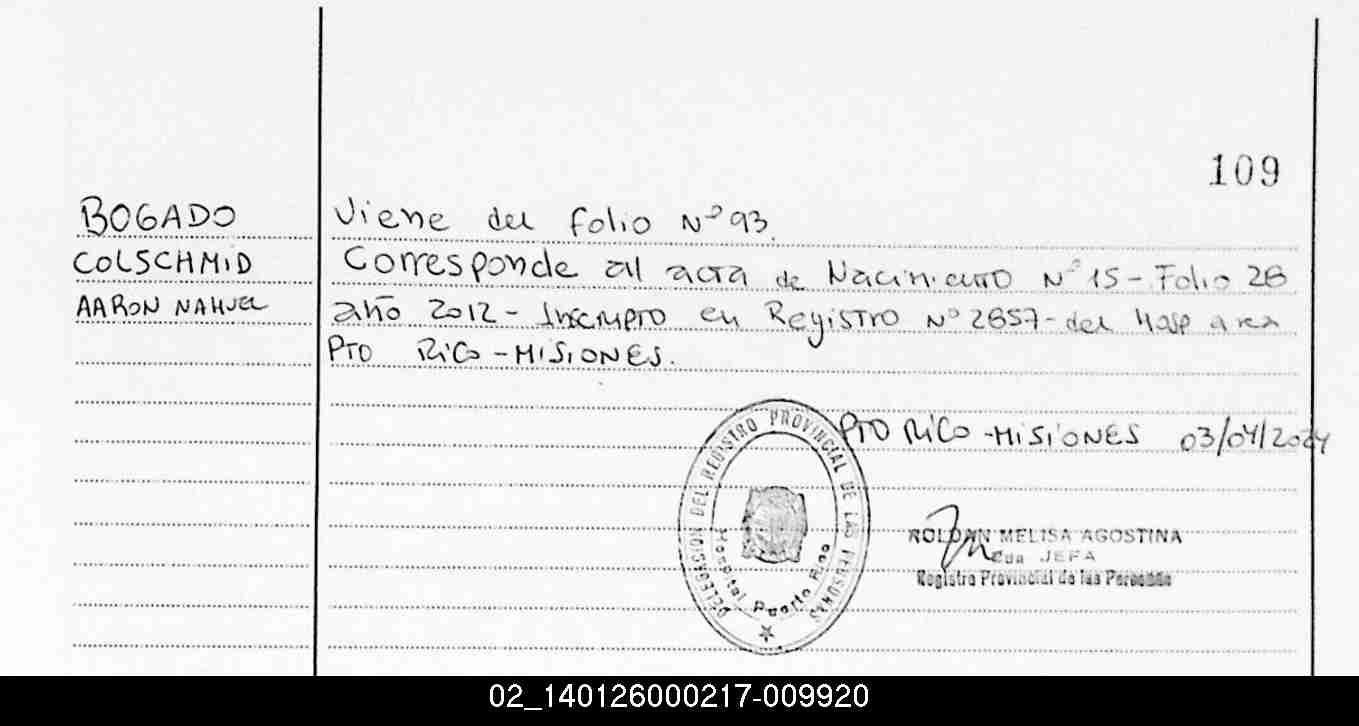 109
BOGADO
COLSCHMID
AARON NAHUEL
Viene del folio Nº 93.
Corresponde al acta de Nacimiento Nº 15 - Folio 28
año 2012 - Inscripto en Registro Nº 2657 - del Hosp area
PTO RICO - MISIONES.
PTO RICO - MISIONES 03/04/2024
DELEGACION DEL REGISTRO PROVINCIAL DE LAS PERSONAS
Hospital Puerto Rico
ROLDAN MELISA AGOSTINA
JEFA
Registro Provincial de las Personas
02_140126000217-009920